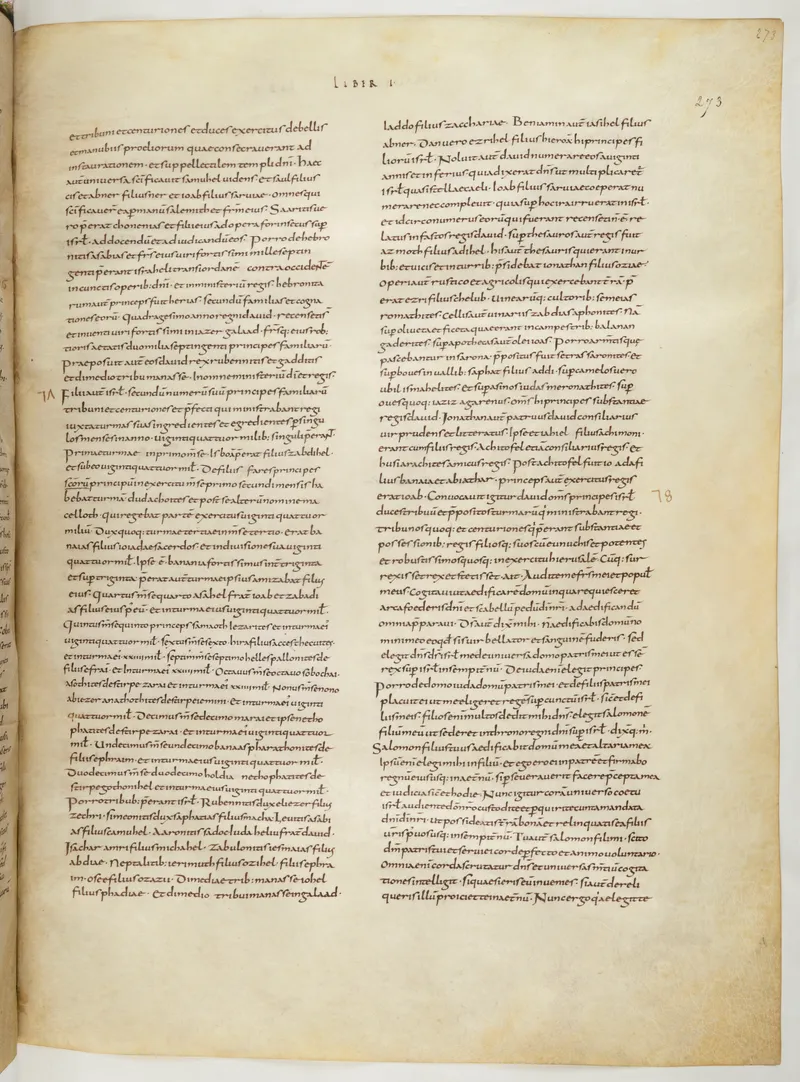 LIBER I
273
273
et tribuni et centuriones et duces exercitus de bellis
et manubiis proeliorum quae consecraverant ad
instaurationem et suppellectilem templi dni. Haec
aut universa scificavit samuhel videns et saul filius
cis et abner filius ner et ioab filius saruiae. omnesqui
scificaver ea p manu salemith et frm eius. Saaritis ue
ro perat chonenias et filii eius ad opera forinsecus sup
isrl. ad docendu et ad iudicandu eos. Porro de hebro
nitis asabias et frs eius uiri fortissimi mille septin
genti perant israheli trans iordane contra occidente
in cunctis operib: dni. et in ministeriu regis hebronita
rum aut princeps fuit herias secundu familias et cogna
tiones eoru. Quadragesimo anno regni dauid. recensiti s
et inuenti uiri fortissimi in iazer galaad. frsq: eius rob:
tioris aetatis duo milia septingenti principes familiaru.
Praeposuit aut eos dauid rex rubenitis et gadditis
et dimedio tribu manasse. In omne ministeriu di et regis
71 Filii aut isrl. secundu numeru suu principes familiaru
tribuni et centuriones et pfecti qui ministrabant regi
iuxta turmas suas ingredientes et egredientes p singu
los menses in anno. uiginti quattuor milib: singuli perant.
Primae turmae in primo mse. Isboa perat filius zabdihel.
et sub eo uiginti quattuor mil. De filiis fares princeps
scoru principu in exercitu mse primo secundi mensis ha
bebat turma dudi achohites et post se alteru nomine ma
celloth. qui regebat parte exercitus uiginti quattuor
miliu. Dux quoq: turmae tertiae in mse tertio. erat ba
naias filius ioiadae sacerdos. et in diuisione sua uiginti
quattuor mil. Ipse e banaia fortissimus int triginta
et sup triginta. perat aut turmae ipsius amizabat filius
eius. Quartus mse quarto asahel frat ioab et zabadi
as filius eius p eu. et in turma eius uiginti quattuor mil.
Quintus mse quinto princeps samaoth iezarites et in turma ei
uiginti quattuor mil. sextus mse sexto. hira filius acces thecuites.
et in turma ei xxiiii mil. septim mse septimo helles pallonites de
filiis efrai. et In turma ei xxiiii mil. Octauus mse octauo sobochai.
asothites de stirpe zarai et in turma ei xxiiii mil. Nonus mse nono
abiezer anathothites de stirpe iemini. et in turma ei uiginti
quattuor mil. Decimus mse decimo marai et ipse netho
phatites de stirpe zarai. et in turma ei uiginti quattuor
mil. Undecimus mse undecimo banaas pharathonites de
filiis ephraim. et in turma eius uiginti quattuor mil.
Duodecimus mse duodecimo holdia nethophatites de
stirpe gothonihel et in turma eius uiginti quattuor mil.
Porro tribub: perant isrl. Rubenitis dux eliezer filius
zechri. simeonitis dux saphatias filius maacha. Leuitis asabi
as filius camuhel. Aaronitis sadoc Iuda heliu frat dauid.
Isachar amri filius michahel. Zabulonitis iesmaias filius
abdiae. Neptalitib: ierimuth filius ozihel. filiis ephra
im. osee filius ozaziu. Dimediae trib: manasse iohel
filius phadiae. Et dimedio tribui manasse in galaad.
Iaddo filius zacchariae. Beniamin aut iasihel filius
abner. Dan uero ezrihel filius hieroa hi principes fi
lioru isrl. Noluit aut dauid numerare eos a uiginti
annis et inferius quia dixerat dns ut multiplicaret
isrl quasi stellae caeli. Ioab filius saruiae coeperat nu
merare nec compleuit. quia sup hoc ira irruerat in isrl.
et idcirco numerus eoru qui fuerant recensiti n e re
latus in fastos regis dauid. sup thesauros aut regis fuit
azmoth filius adihel. his aut thesauris qui erant in ur
bib: et uicis et in turrib: psidebat ionathan filius oziae.
Operi aut rustico et agricolis qui exercebant tra p
erat ezri filius chelub. Uinearuq: cultorib: semeias
romathites. Cellis aut uinariis zabdias aphonites. Na
sup oliueta et ficeta quae erant in campestrib: balanan
gaderites. sup apothecas aut olei ioas. Porro armtis que
pascebantur in sarona. ppositus fuit setrai saronites et
sup boues in uallib: saphat filius addi. sup camelos uero
ubil ismahelites. et sup asinos iadas meronathites. sup
oues quoq: iaziz agarenus. oms hi principes substantiae
regis dauid. Ionathan aut patruus dauid consiliarius
uir prudens et litteratus. Ipse et iahiel filius achimoni.
erant cum filiis regis. Achitofel etia consiliarius regis. et
husi arachites amicus regis. Post achitofel fuit ioiada fi
lius banaia et abiathar. princeps aut exercitus regis
erat ioab. Conuocauit igitur dauid oms principes isrl
duces tribuu et ppositos turmaru q ministrabant regi. 78
tribunos quoq: et centuriones q perant substantiae et
possessionib: regis filiosq: suos cu eunuchis et potentes
et robustissimos quosq: in exercitu hierusale. Cuq: sur
rexisset rex et stetisset ait. Audite me frs mei et popul
meus. Cogitaui ut aedificare domu in qua requiesceret
arca foederis dni et scabellu pedu di nri. ad aedificandu
omnia pparaui. Ds aut dix mihi. N aedificabis domu no
mini meo eo qd sis uir bellator et sanguine fuderis. sed
elegit dns ds isrl me de uniuersa domo patris mei ut esse
rex sup isrl in sempitnu. De iuda eni elegit principes
Porro de domo iuda domu patris mei. et de filiis patris mei
placuit ei ut me eligeret rege sup cunctu isrl. sic et de fi
liis meis. filios eni multos dedit mihi dns. elegit salomone
filiu meu ut sederet in throno regni dni sup isrl. dixq: m.
Salomon filius tuus aedificabit domu mea et altaria mea
Ipsu eni elegi mihi in filiu. et ego ero ei in patre et firmabo
regnu eius usq: in aetnu. si pseuerauerit facere pcepta mea
et iudicia sic et hodie. Nunc igitur cora uniuerso coetu
isrl audiente do nro custodite et pquirite cuncta mandata
dni di nri. ut possideatis tra bona et relinquatis ea filiis
uris p uos usq: in sempitnu. Tu aut salomon fili mi. scito
dm patris tui et serui ei corde pfecto et animo uoluntario.
Omnia eni corda scrutatur dns et uniuersas mtiu cogita
tiones intellegit. si quaesieris eu inuenies. si aut dereli
queris illu proiciet te in aetnu. Nunc ergo qa elegit te